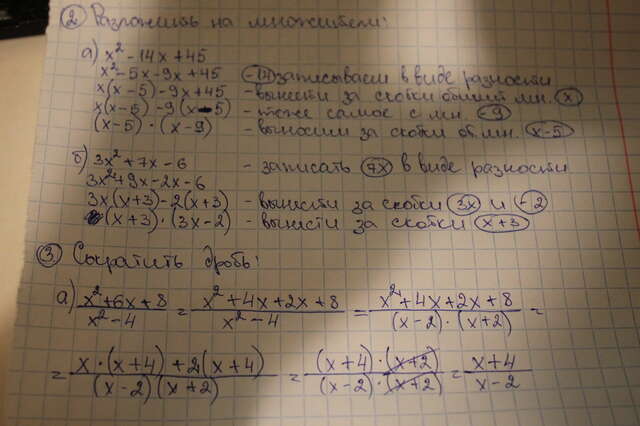 ② Разложить на множители:
а) x² - 14x + 45
x² - 5x - 9x + 45 (-14) записываем в виде разности
x(x - 5) - 9x + 45 - вынести за скобки общий мн. (x)
x(x - 5) - 9(x - 5) - тоже самое с мн. (-9)
(x - 5) · (x - 9) - выносим за скобки общ мн. (x - 5)
б) 3x² + 7x - 6 - записать (7x) в виде разности
3x² + 9x - 2x - 6
3x(x + 3) - 2(x + 3) - вынести за скобки (3x) и (-2)
(x + 3) · (3x - 2) - вынести за скобки (x + 3)
③ Сократить дробь:
а) (x² + 6x + 8)/(x² - 4) = (x² + 4x + 2x + 8)/(x² - 4) = (x² + 4x + 2x + 8)/((x - 2) · (x + 2)) =
= (x · (x + 4) + 2(x + 4))/((x - 2)(x + 2)) = ((x + 4) · (x + 2))/((x - 2) · (x + 2)) = (x + 4)/(x - 2)